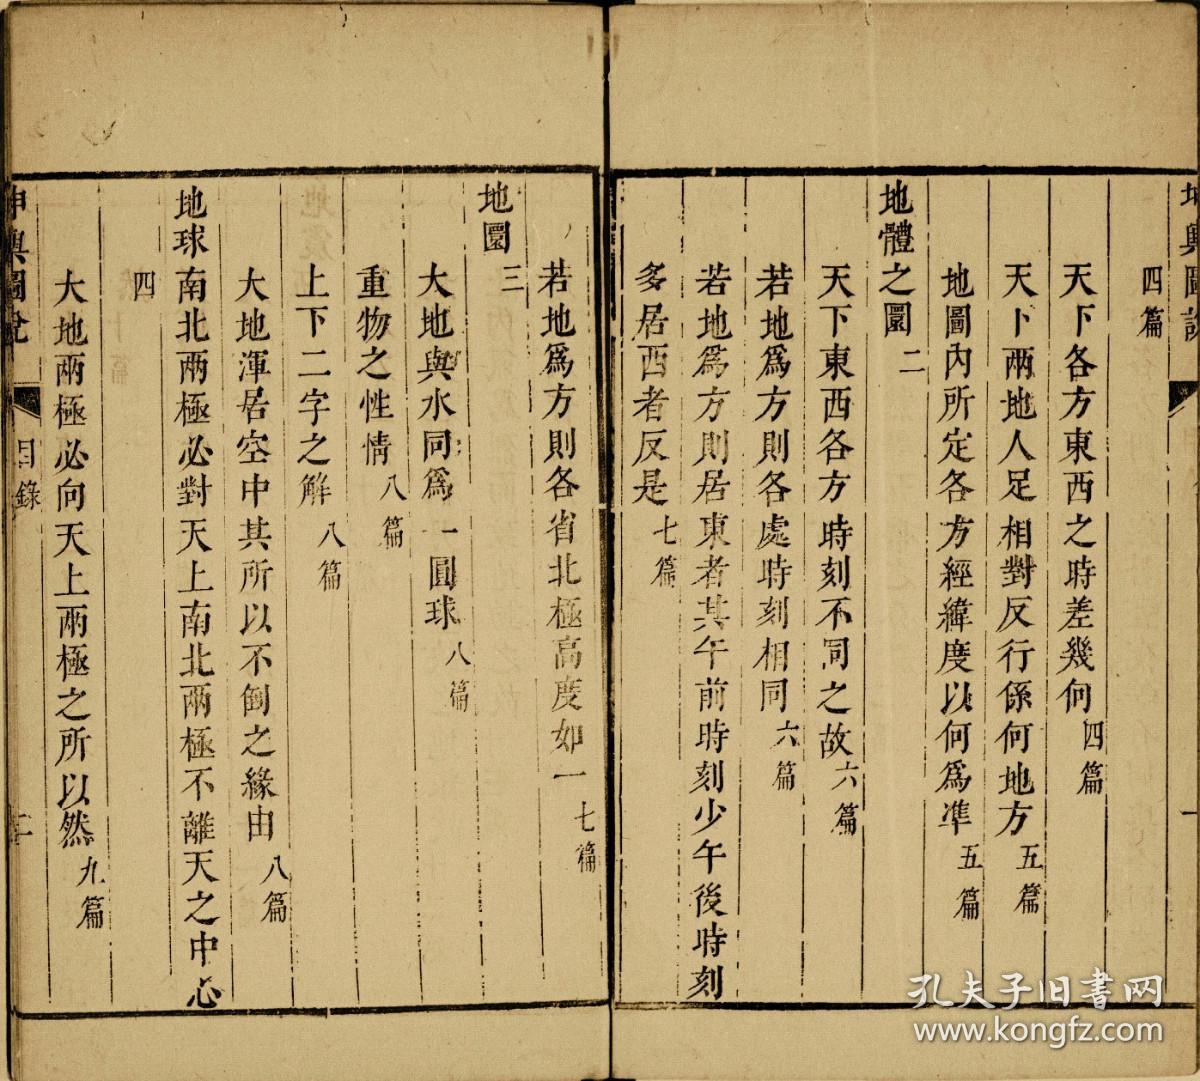 坤輿圖說
一
四篇
天下各方東西之時差幾何四篇
天下兩地人足相對反行係何地方五篇
地圖內所定各方經緯度以何爲準五篇
地體之圜二
天下東西各方時刻不同之故六篇
若地爲方則各處時刻相同六篇
若地爲方則居東者其午前時刻少午後時刻
多居西者反是七篇
若地爲方則各省北極高度如一七篇
地圜三
大地與水同爲一圓球八篇
重物之性情八篇
上下二字之解八篇
大地渾居空中其所以不倒之緣由八篇
地球南北兩極必對天上南北兩極不離天之中心
四
大地兩極必向天上兩極之所以然九篇
坤輿圖說
目錄
二
孔夫子旧书网
www.kongfz.com